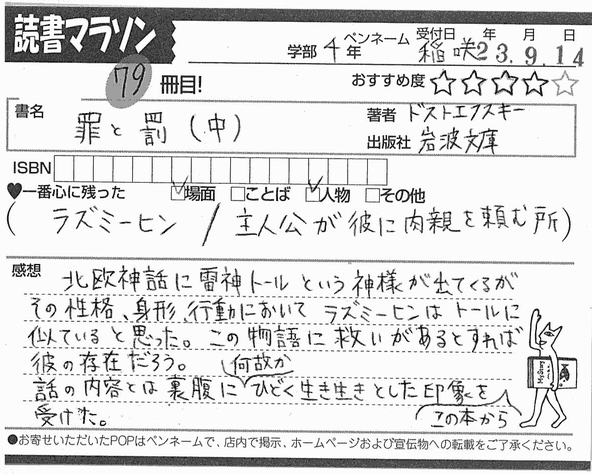 読書マラソン
学部 4 年
ペンネーム 稲咲
受付日 年 月 日
23.9.14
79 冊目!
おすすめ度 ☆☆☆☆☆
書名
罪と罰(中)
著者 ドストエフスキー
出版社 岩波文庫
ISBN
♥一番心に残った ☑場面 □ことば ☑人物 □その他
( ラズミーヒン / 主人公が彼に肉親を頼む所)
感想
北欧神話に雷神トールという神様が出てくるが
その性格、身形、行動においてラズミーヒンはトールに
似ていると思った。この物語に救いがあるとすれば
彼の存在だろう。
話の内容とは裏腹に何故かひどく生き生きとした印象を
この本から
受けた。
●お寄せいただいたPOPはペンネームで、店内で掲示、ホームページおよび宣伝物への転載をご了承ください。